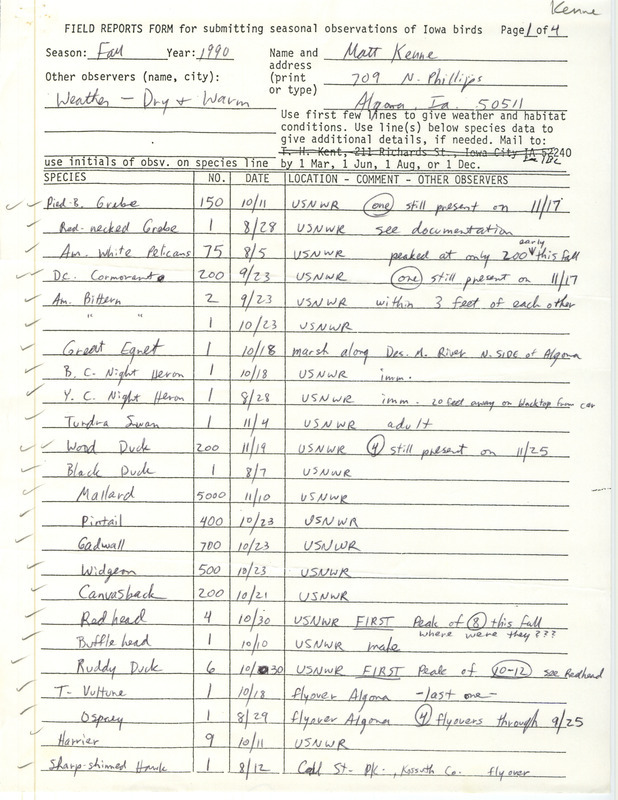 Kenne
FIELD REPORTS FORM for submitting seasonal observations of Iowa birds Page 1 of 4
Season: Fall Year: 1990 Name and Matt Kenne
address
Other observers (name, city): (print 709 N. Phillips
or type)
Weather - Dry + Warm Algona, Ia. 50511
Use first few lines to give weather and habitat
conditions. Use line(s) below species data to
give additional details, if needed. Mail to:
T. H. Kent, 211 Richards St., Iowa City IA 52240
use initials of obsv. on species line by 1 Mar, 1 Jun, 1 Aug, or 1 Dec.
SPECIES NO. DATE LOCATION - COMMENT - OTHER OBSERVERS
Pied-B. Grebe 150 10/11 USNWR one still present on 11/17
Red-necked Grebe 1 8/28 USNWR see documentation
Am. White Pelicans 75 8/5 USNWR peaked at only 200 early this fall
DC. Cormorant 200 9/23 USNWR one still present on 11/17
Am. Bittern 2 9/23 USNWR within 3 feet of each other
" " 1 10/23 USNWR
Great Egret 1 10/18 marsh along Des. M. River N. SIDE of Algona
B. C. Night Heron 1 10/18 USNWR imm.
Y. C. Night Heron 1 8/28 USNWR imm. 20 feet away on blacktop from car
Tundra Swan 1 11/4 USNWR adult
Wood Duck 200 11/19 USNWR 4 still present on 11/25
Black Duck 1 8/7 USNWR
Mallard 5000 11/10 USNWR
Pintail 400 10/23 USNWR
Gadwall 700 10/23 USNWR
Widgeon 500 10/23 USNWR
Canvasback 200 10/21 USNWR
Redhead 4 10/30 USNWR FIRST Peak of 8 this fall
where were they???
Bufflehead 1 10/10 USNWR male
Ruddy Duck 6 10/30 USNWR FIRST Peak of 10-12 see Redhead
T- Vulture 1 10/18 flyover Algona -last one-
Osprey 1 8/29 flyover Algona 4 flyovers through 9/25
Harrier 9 10/11 USNWR
Sharp-shinned Hawk 1 8/12 Call St. Pk., Kossuth Co. flyover